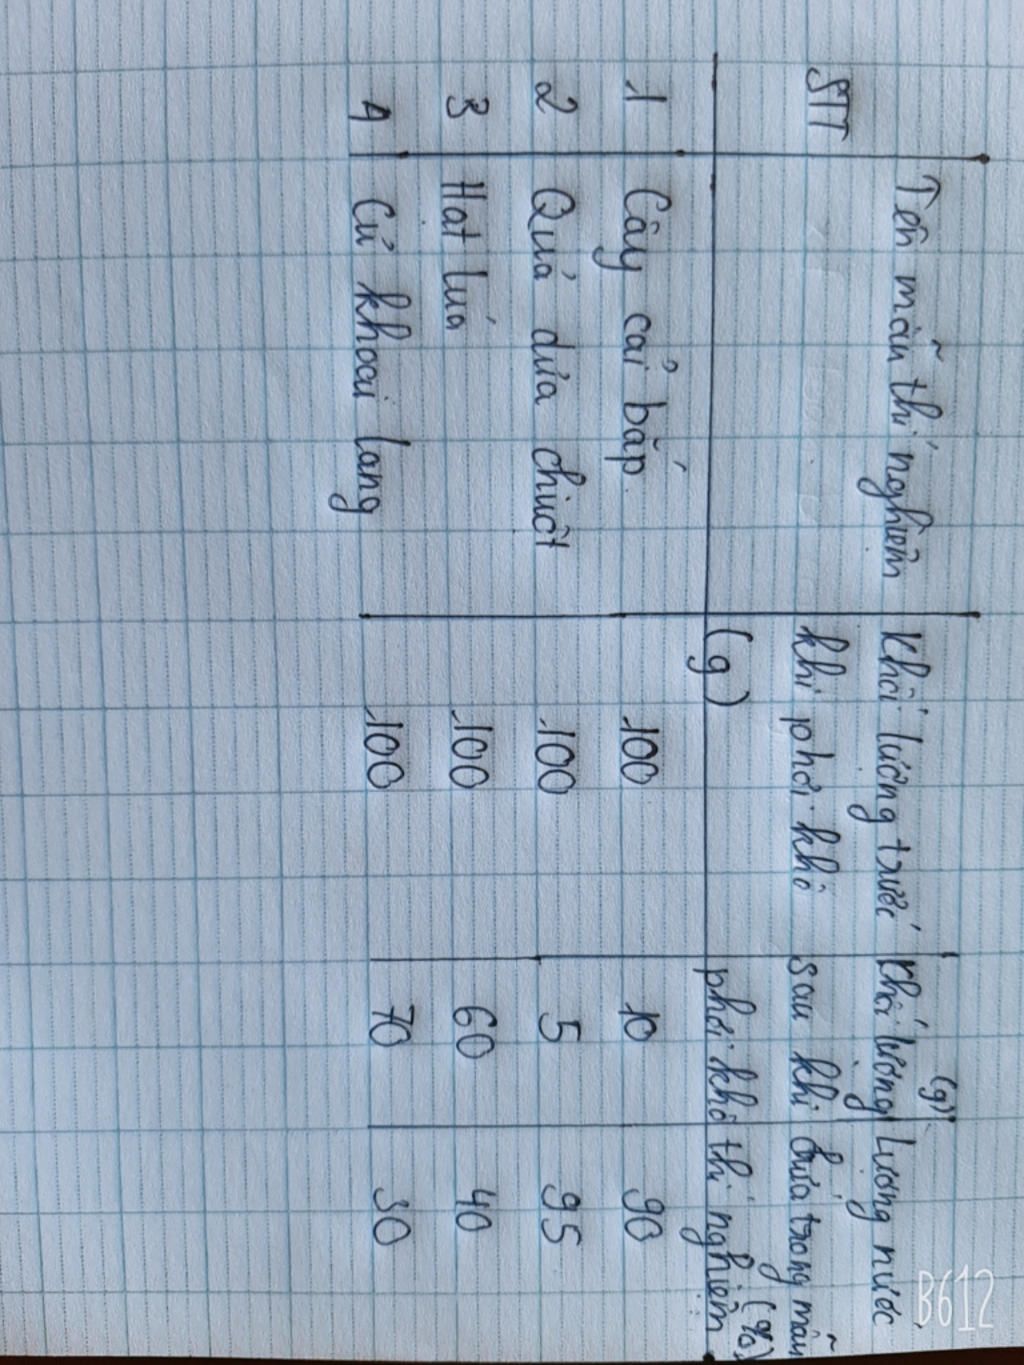 STT Tên mẫu thí nghiệm Khối lượng trước khi phơi khô (g) Khối lượng sau khi phơi khô (g) Lượng nước chứa trong mẫu thí nghiệm (%)
1 Cây cải bắp. 100 10 90
2 Quả dưa chuột 100 5 95
3 Hạt lúa 100 60 40
4 Củ khoai lang 100 70 30
B612